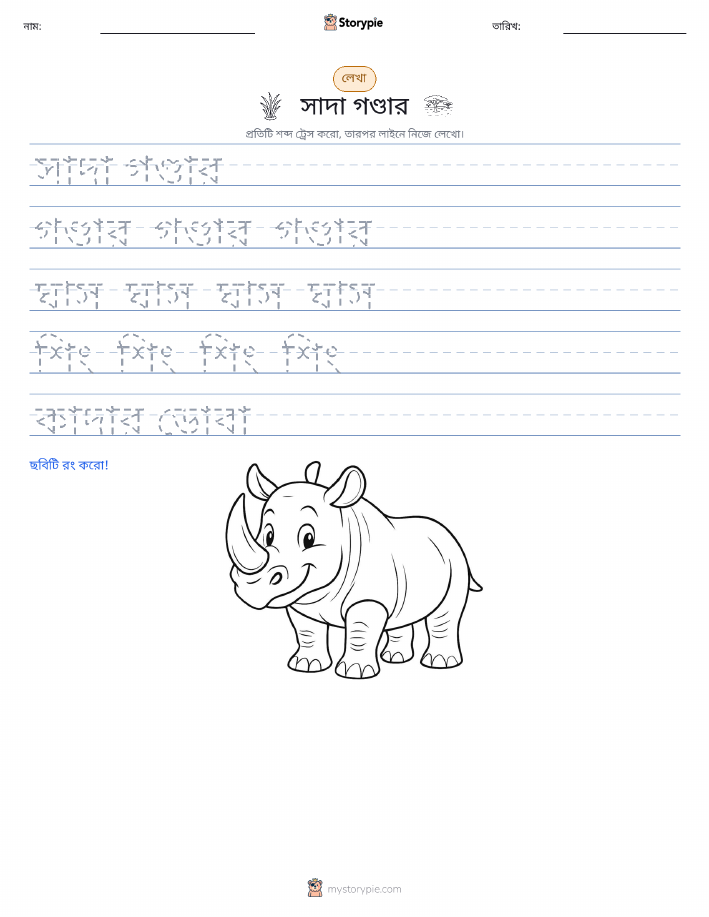 নাম:
Storypie
তারিখ:
লেখা
সাদা গণ্ডার
প্রতিটি শব্দ ট্রেস করো, তারপর লাইনে নিজে লেখো।
সাদা গণ্ডার
গণ্ডার গণ্ডার গণ্ডার
ঘাস ঘাস ঘাস ঘাস
শিং শিং শিং শিং
কাদার ডোবা
ছবিটি রং করো!
mystorypie.com